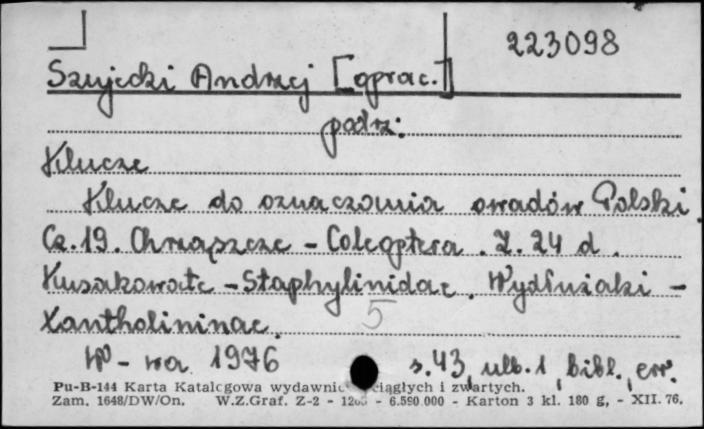 223098
Szujecki Andrzej [oprac.]
patrz:
Klucze
Klucze do oznaczania owadów Polski.
Cz.19. Chrząszcze - Coleoptera. Z. 24 d.
Kusakowate - Staphylinidae. Wydłużaki -
Xantholininae.
5
W-wa 1976 s.43, ulb.1, bibl., err.
Pu-B-144 Karta Katalogowa wydawnic ciągłych i zwartych.
Zam. 1648/DW/On. W.Z.Graf. Z-2 - - 6.590.000 - Karton 3 kl. 180 g, - XII. 76.